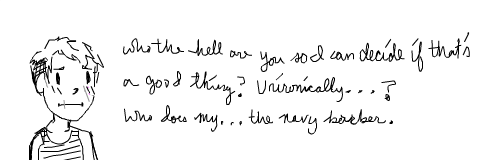 who the hell are you so I can decide if that's
a good thing? Unironically...?
Who does my... the navy barber.